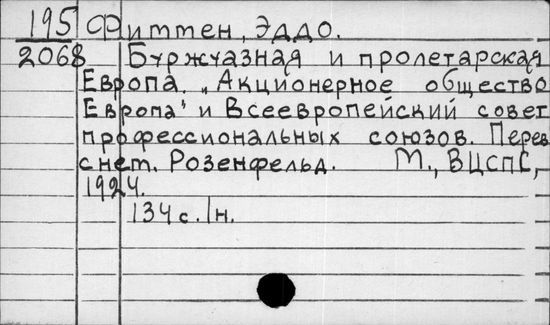 195 Фиттен, Эддо.
2068 Буржуазная и пролетарская
Европа. „Акционерное общество
Европа" и Всеевропейский совет
профессиональных союзов. Перев
с нем. Розенфельд. М., ВЦСПС,
1924.
134 с. 1н.